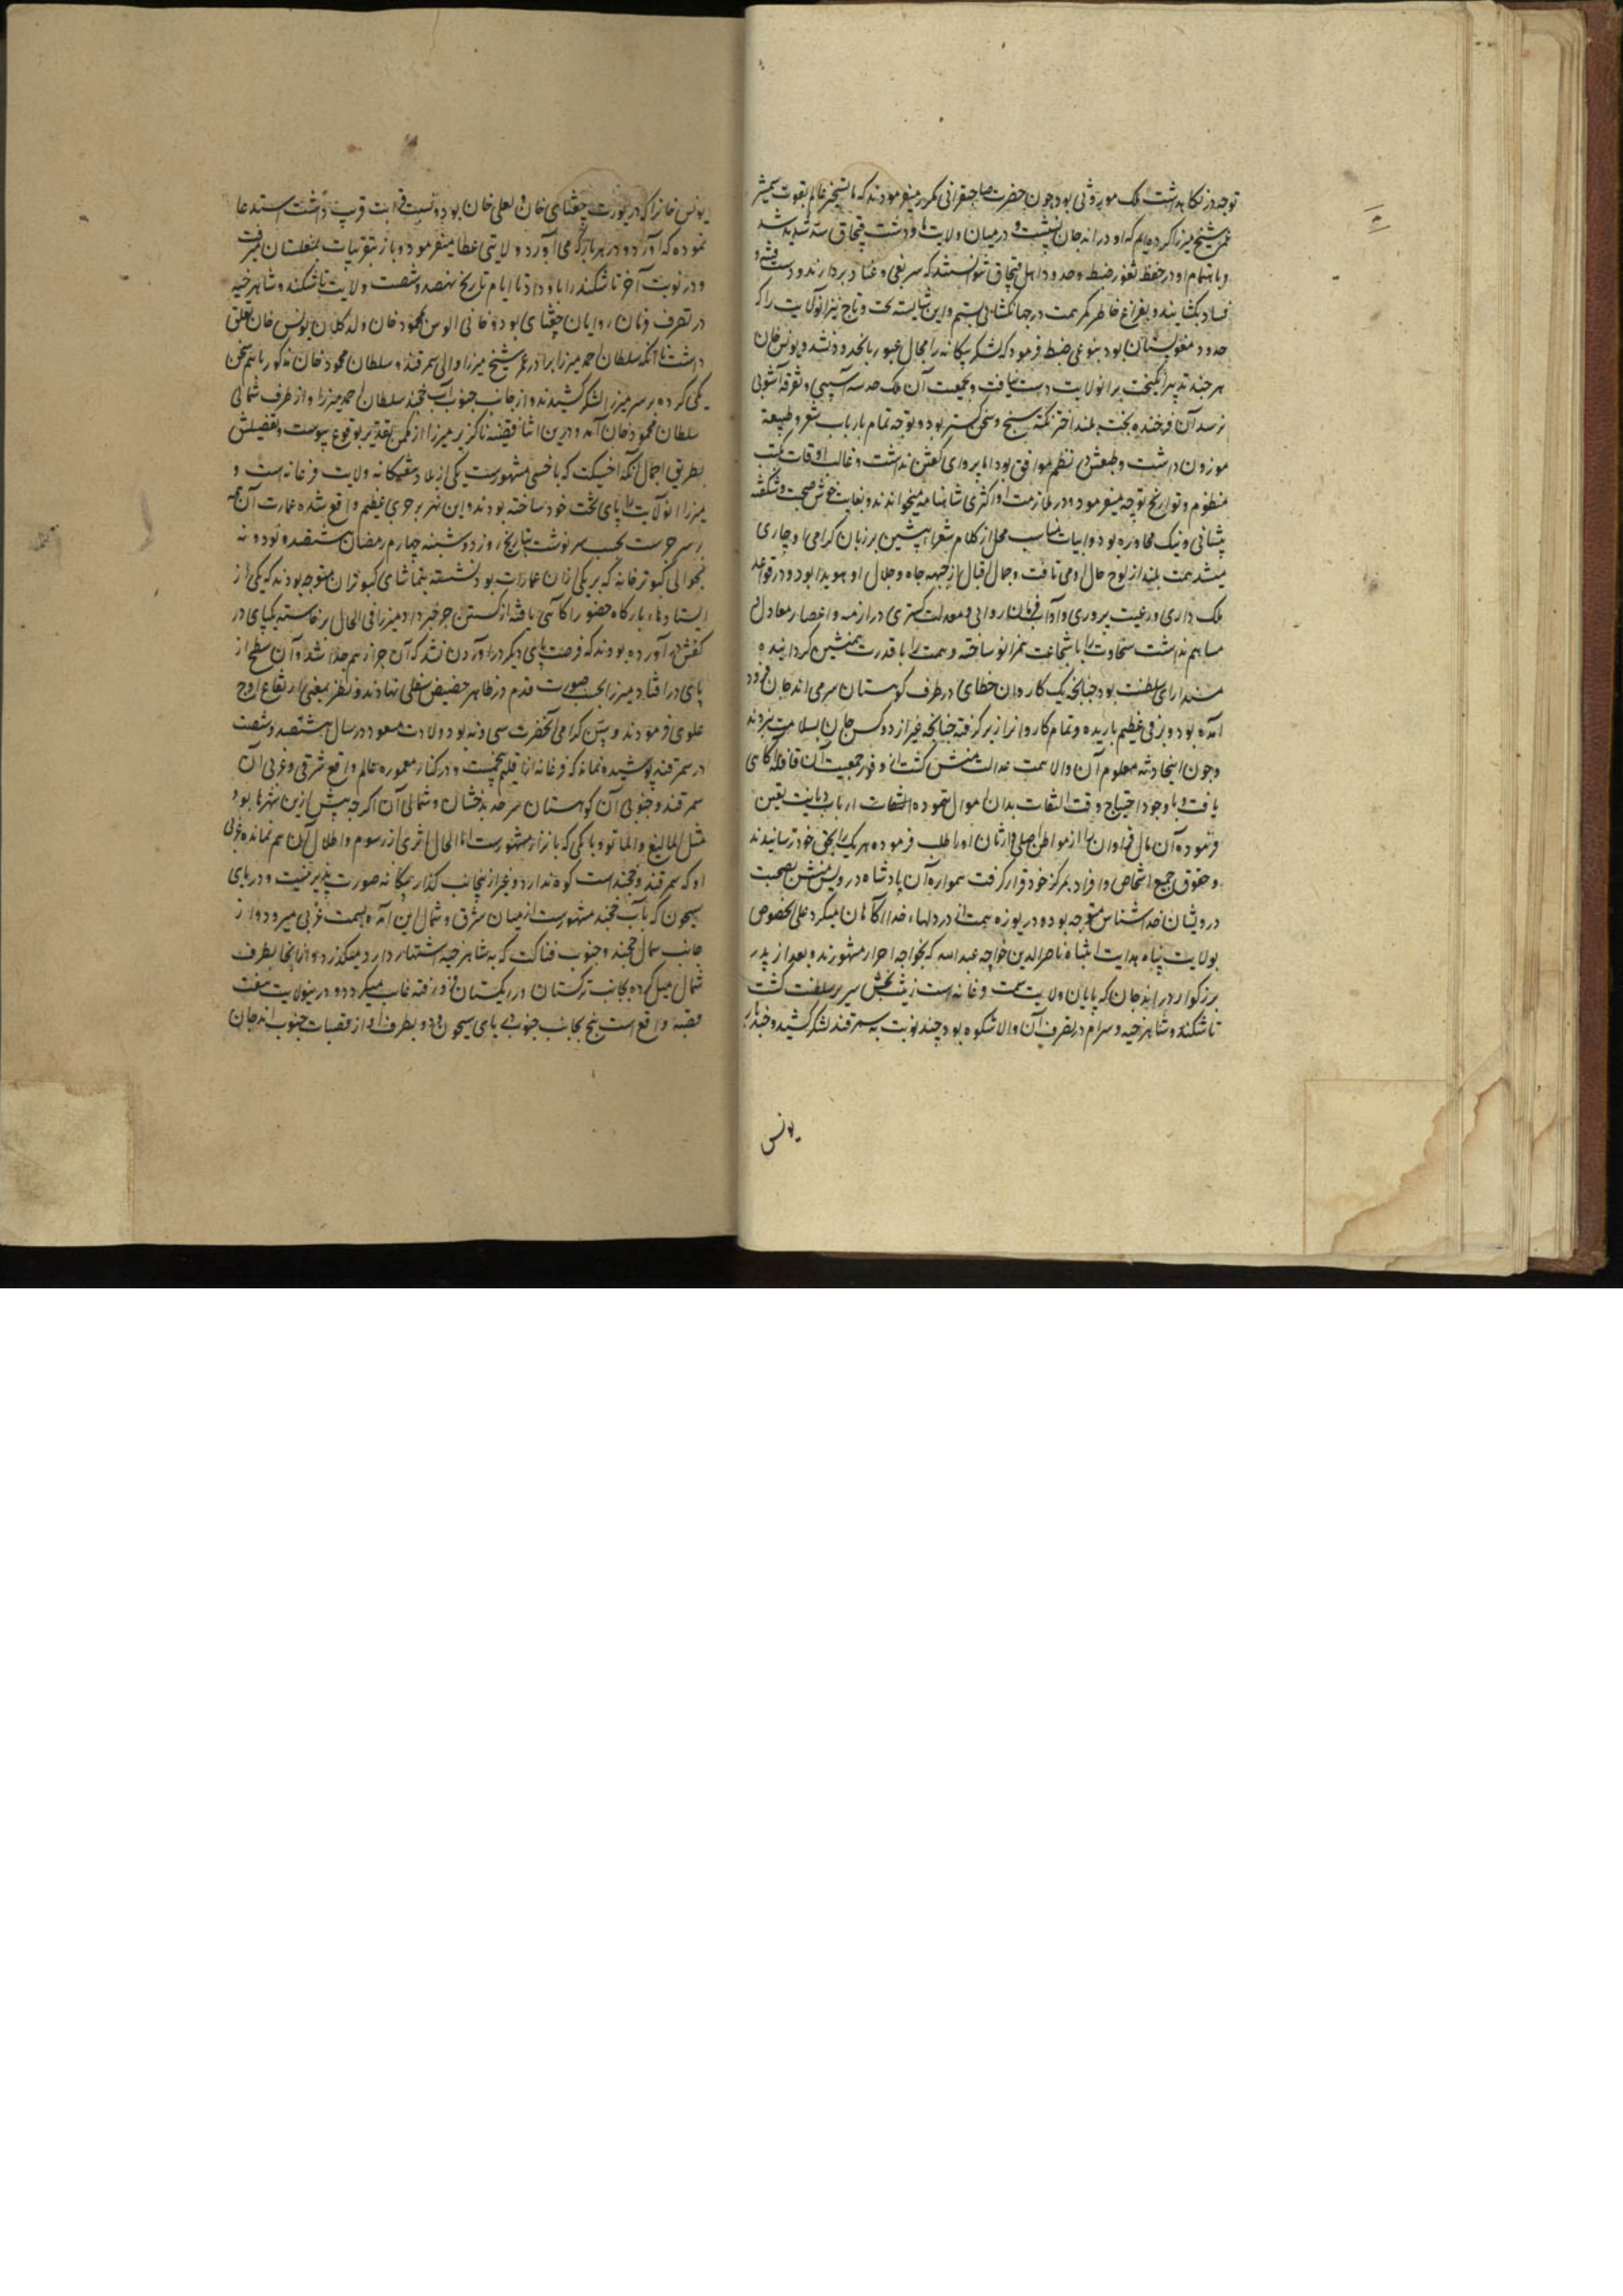 توجه در نکاهداشت ملک موروثی بود چون حضرت صاحبقرانی مکرر میفرمودند که ما تسخیر عالم بقوت شمشیر
عمر شیخ میرزا کرده‌ایم که او در اندجان نشست و در میان ولایت ما و دشت قبچاق سد شدید شد
و باهتمام او در حفظ ثغور و ضبط حدود اهل قبچاق نتوانستند که سر بغی و عناد بردارند و دست فتنه و
فساد بکشایند و بفراغ خاطر کمر همت در جهانکشائی بستیم و این شایسته تخت و تاج نیز انولایت را که
حدود مغولستان بود بنوعی ضبط فرمود که لشکر بیکانه را مجال عبور بانحدود نشد و یونس خان
هر چند تدبیر انکیخت بر انولایت دست نیافت و بجمعیت آن ملک صدمه آسیبی و تفرقه آشوبی
نرسد آن فرخنده بخت بلند اختر نکته سنج و سخن کستر بود و توجه تمام بارباب شعر و طبیعت
موزون داشت و طبعش در نظم موافق بود اما پروای کفتن نداشت و غالب اوقات کتب
منظوم و تواریخ توجه میفرمود و در ملازمت او اکثری شاهنامه میخواندند و بغایت خوش صحبت و شکفته
پیشانی و نیک محاوره بود و ابیات مناسب محل از کلام شعراء پیشین بر زبان کرامی او جاری
میشد همت بلند از لوح حال او می تافت و جمال اقبال از جبهه جاه و جلال او هویدا بود و در قواعد
ملک داری و رعیت پروری و آداب فرمان روائی و معدلت کستری در ازمنه و اعصار معادل و
مساهم نداشت سخاوت را با شجاعت همزانو ساخته و همت را با قدرت همنشین کردانیده
مسند ارای سلطنت بود چنانچه یک کاروان خطای در طرف کوهستان شرقی اندجان فرود
آمده بود و برفی عظیم باریده و تمام کاروانرا زیر کرفته چنانچه غیر از دو کس جان بسلامت نبردند
و چون اینحادثه معلوم آن والا همت عدالت منش کشت از وفور جمعیت آن قافله آکاهی
یافت و با وجود احتیاج وقت التفات بدان اموال ننموده الثقات ارباب دیانت تعین
فرموده آن مال فراوان را از مواطن اصلی وارثان او را طلب فرموده هر یک را بحق خود رسانیدند
و حقوق جمیع اشخاص و افراد بمرکز خود قرار کرفت همواره آن پادشاه درویش منش بصحبت
درویشان خداشناس متوجه بود و دریوزه همت از در دلهاء خدا اکاهان میکرد علی الخصوص
بولایت پناه هدایت انتباه ناصرالدین خواجه عبدالله که بخواجه احرار مشهورند و بعد از پدر
بزرکوار در اندجان که پایان ولایت سمت فرغانه است زینت بخش سریر سلطنت کشت
تاشکند و شاهرخیه و سیرام در تصرف آن والا شکوه بود چند نوبت به سمرقند لشکر کشید و چند بار
یونس
یونس خانرا که در یورت چغتای خان و لعلی خان بود و نسبت قرابت قریب داشت استدعا
نموده که آورد و در هر بار که می آورد ولایتی عطا میفرمود و باز بتقریبات بمغلستان میرفت
و در نوبت آخر تاشکند را باو داد تا ایام تاریخ نهصد و شصت ولایت تاشکند و شاهرخیه
در تصرف فرمان روایان چغتای بود و خانی الوس بمحمود خان ولد کلان یونس خان تعلق
داشت تا انکه سلطان احمد میرزا برادر عمر شیخ میرزا والی سمرقند و سلطان محمود خان مذکور باهم سخن
یکی کرده بر سر میرزا لشکر کشیدند و از جانب جنوب آب خجند سلطان احمد میرزا و از طرف شمالی
سلطان محمود خان آمد و درین اثنا قضیه ناکزیر میرزا از مکمن تقدیر بوقوع پیوست و تفصیلش
بطریق اجمال آنکه اخسیکت که باخسی مشهورست یکی از بلاد هفتکانه ولایت فرغانه است و
میرزا انولایت را پای تخت خود ساخته بودند و این شهر بر جری عظیم واقع شده عمارت آن همه
بر سر جرست بحسب سرنوشت بتاریخ روز دوشنبه چهارم رمضان هشتصد و نود و نه
بحوالی کبوتر خانه که بر یکی ازان عمارات بود نشسته بتماشای کبوتران متوجه بودند که یکی از
ایستادهاء بارکاه حضور را کاهی یافته از کسستن جر خبر داد میرزا فی الحال برخاسته یکپای در
کفش در آورده بودند که فرصت پای دیکر در اوردن نشد که آن جر از هم جدا شد و آن سطح از
پای در افتاد میرزا بحسب صورت قدم در ظاهر حضیض سفلی نهادند و بنظر بمعنی ارتفاع اوج
علوی فرمودند و سن کرامی آنحضرت سی و نه بود ولادت مسعود در سال هشتصد و شصت
در سمرقند پوشیده نماند که فرغانه از اقلیم پنجمست و در کنار معموره عالم واقع شرقی و غربی آن
سمرقند و جنوبی آن کوهستان سرحد بدخشان و شمالی آن اکرچه پیش ازین شهرها بود
مثل المالیغ و الماتو و یانکی که باترار مشهورست اما الحال اثری از رسوم و اطلال آن هم نمانده غربی
او که سمرقند و خجند است کوه ندارد و غیر ازینجانب کذار بیکانه صورت پذیر نیست و دریای
سیحون که باب خجند مشهورست از میان شرق و شمال این آمده بسمت غربی میرود و از
جانب شمال خجند و جنوب فناکت که به شاهرخیه اشتهار دارد میکذرد و از انجا بطرف
شمال میل کرده بجانب ترکستان در ریکستان فرو رفته غایب میکردد و درین ولایت هفت
قصبه واقع است پنج بجانب جنوبی دریای سیحون و دو بطرف او از قصبات جنوب اندجان